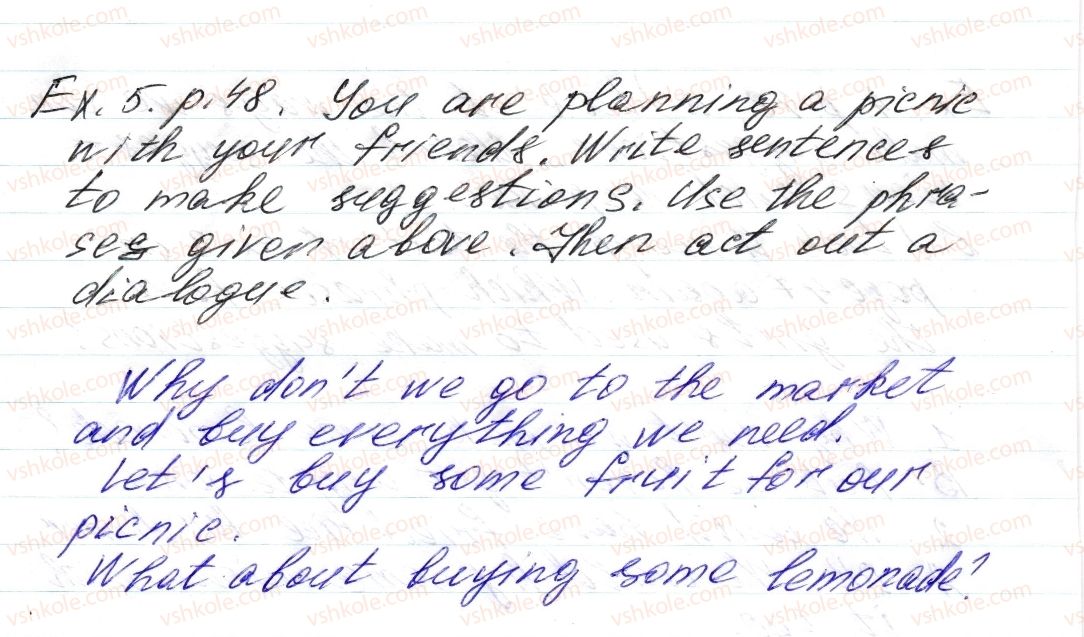 Ex. 5. p. 48. You are planning a picnic
with your friends. Write sentences
to make suggestions. Use the phra-
ses given above. Then act out a
dialogue.
Why don't we go to the market
and buy everything we need.
Let's buy some fruit for our
picnic.
What about buying some lemonade?